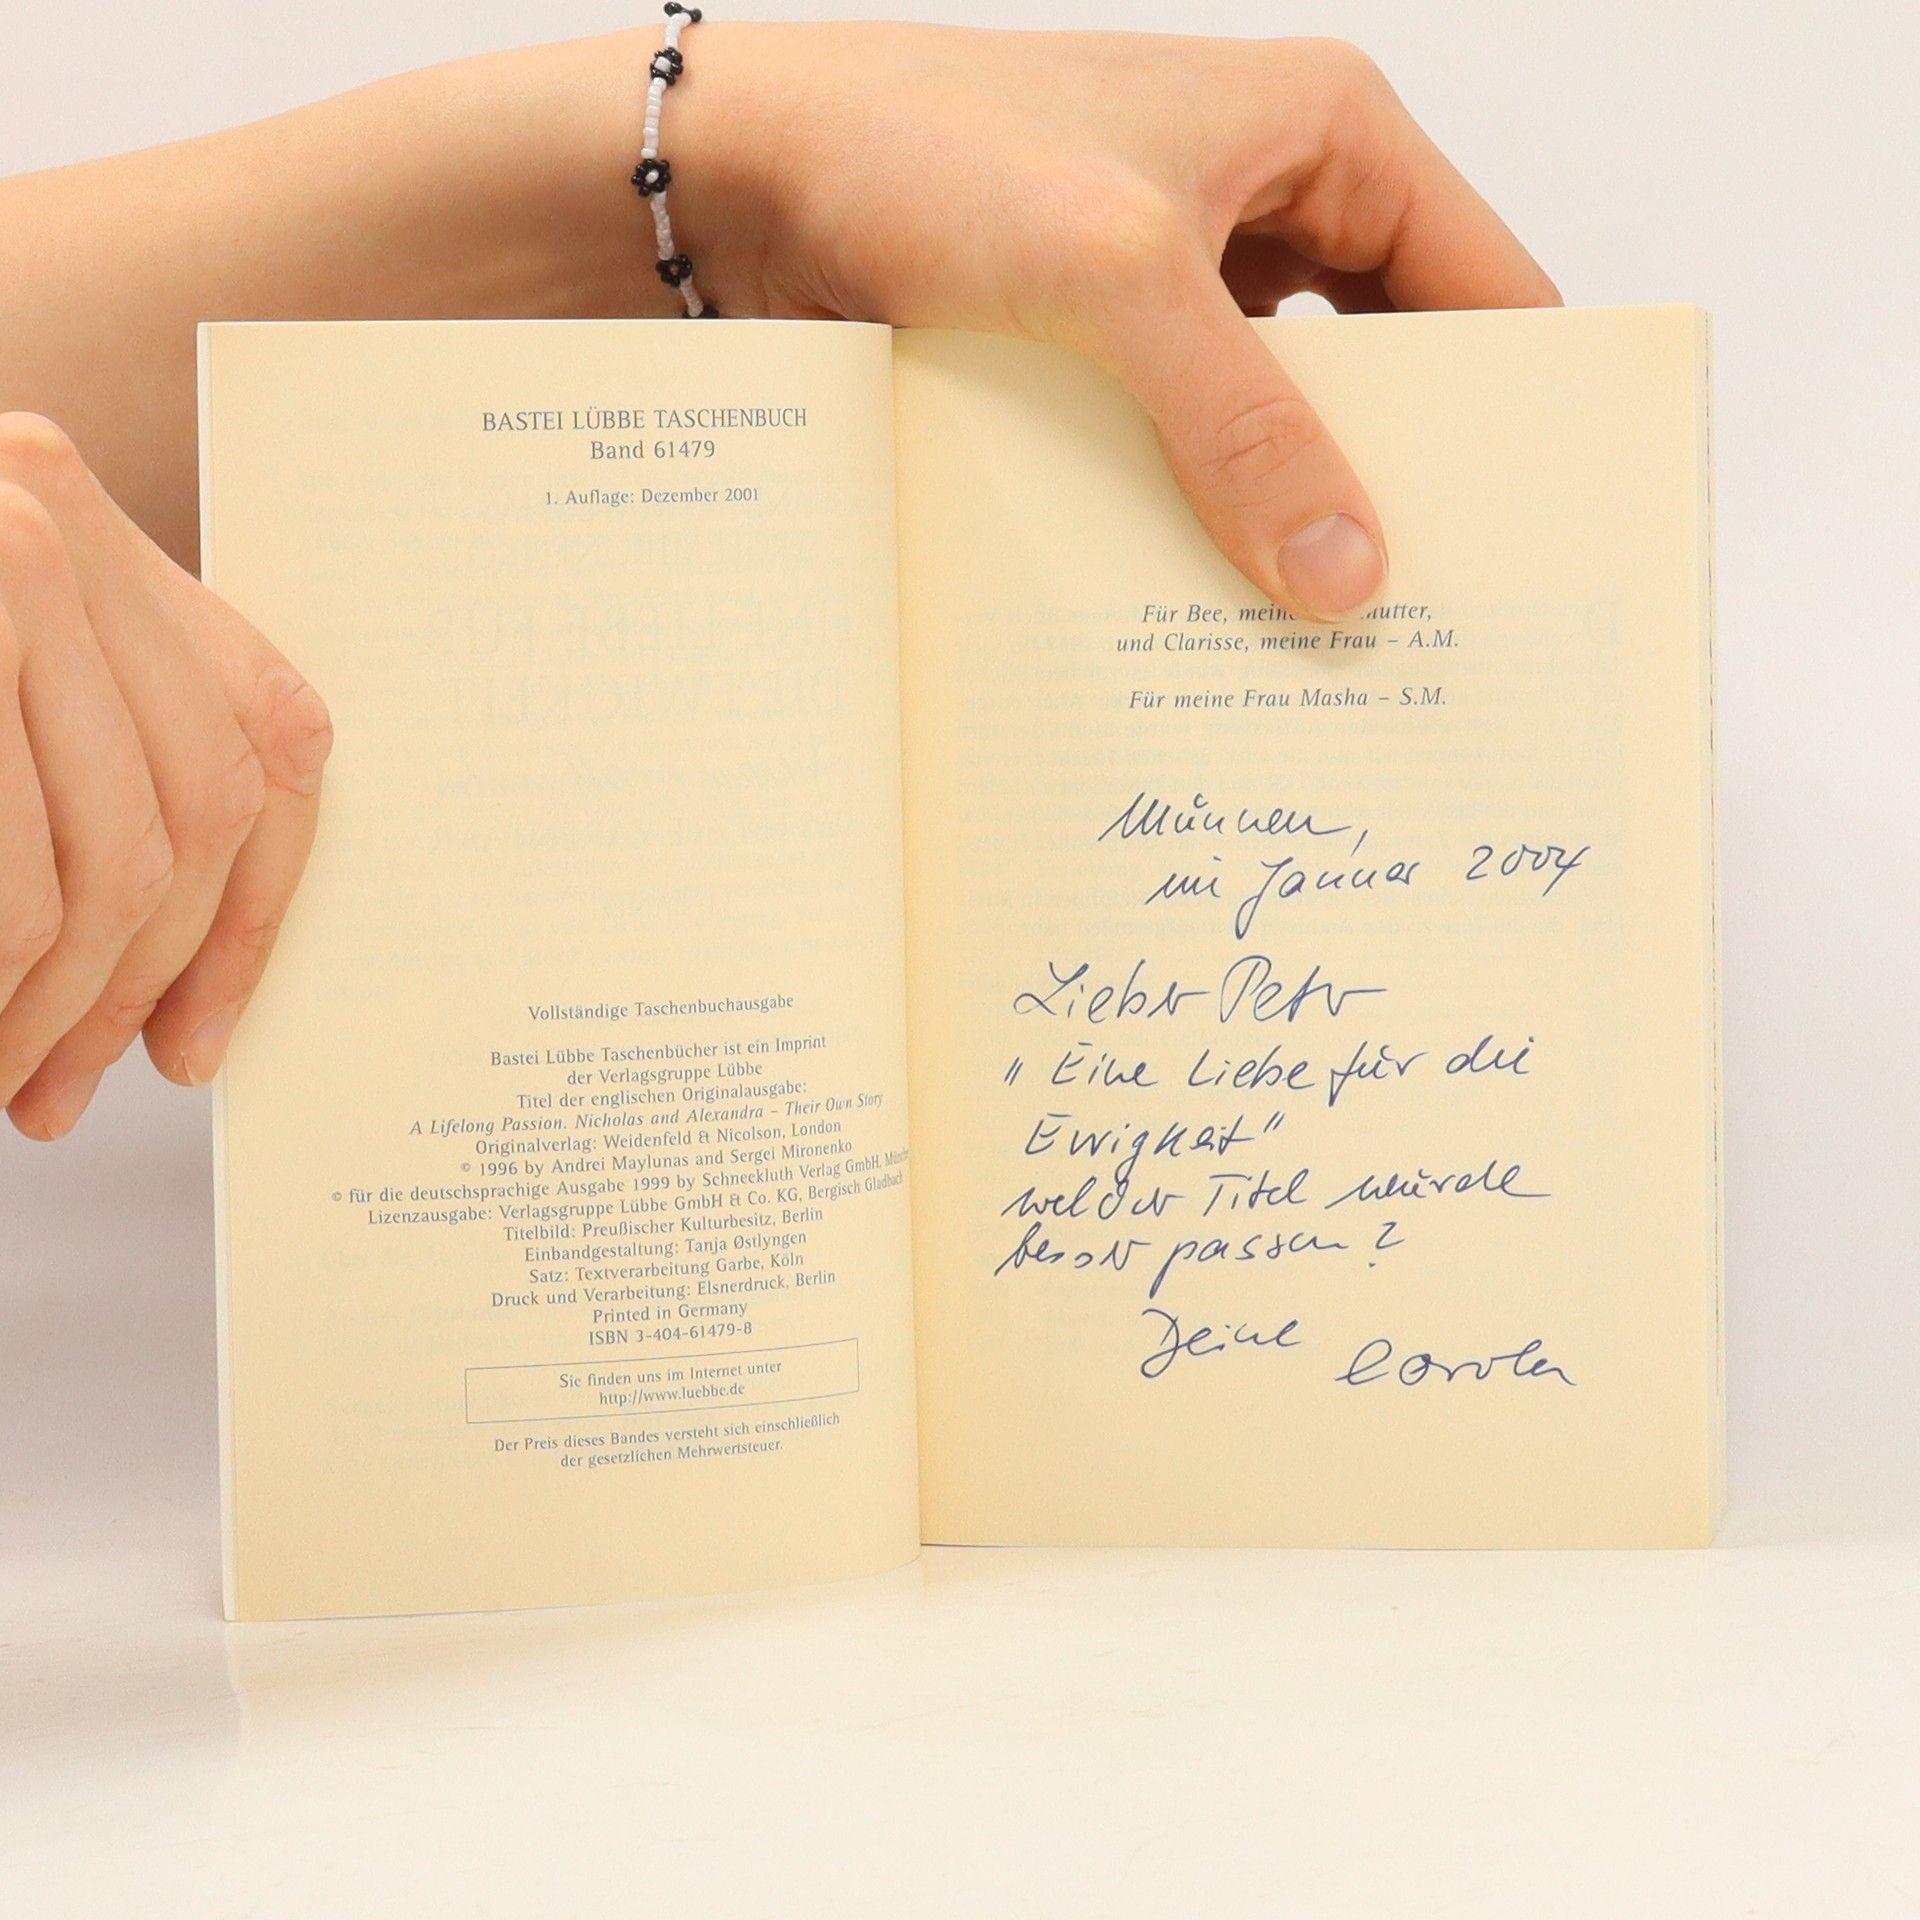 BASTEI LÜBBE TASCHENBUCH
Band 61479
1. Auflage: Dezember 2001
Vollständige Taschenbuchausgabe
Bastei Lübbe Taschenbücher ist ein Imprint
der Verlagsgruppe Lübbe
Titel der englischen Originalausgabe:
A Lifelong Passion. Nicholas and Alexandra – Their Own Story
Originalverlag: Weidenfeld & Nicolson, London
© 1996 by Andrei Maylunas and Sergei Mironenko
© für die deutschsprachige Ausgabe 1999 by Schneekluth Verlag GmbH,
Lizenzausgabe: Verlagsgruppe Lübbe GmbH & Co. KG, Bergisch Gladbach
Titelbild: Preußischer Kulturbesitz, Berlin
Einbandgestaltung: Tanja Østlyngen
Satz: Textverarbeitung Garbe, Köln
Druck und Verarbeitung: Elsnerdruck, Berlin
Printed in Germany
ISBN 3-404-61479-8
Sie finden uns im Internet unter
http://www.luebbe.de
Der Preis dieses Bandes versteht sich einschließlich
der gesetzlichen Mehrwertsteuer.
Für Bee,
und Clarisse, meine Frau – A.M.
Für meine Frau Masha – S.M.
im Januar 2004
Lieber Peter
"Eine Liebe für die
Ewigkeit"
welcher Titel würde
besser passen?
Deine Carola